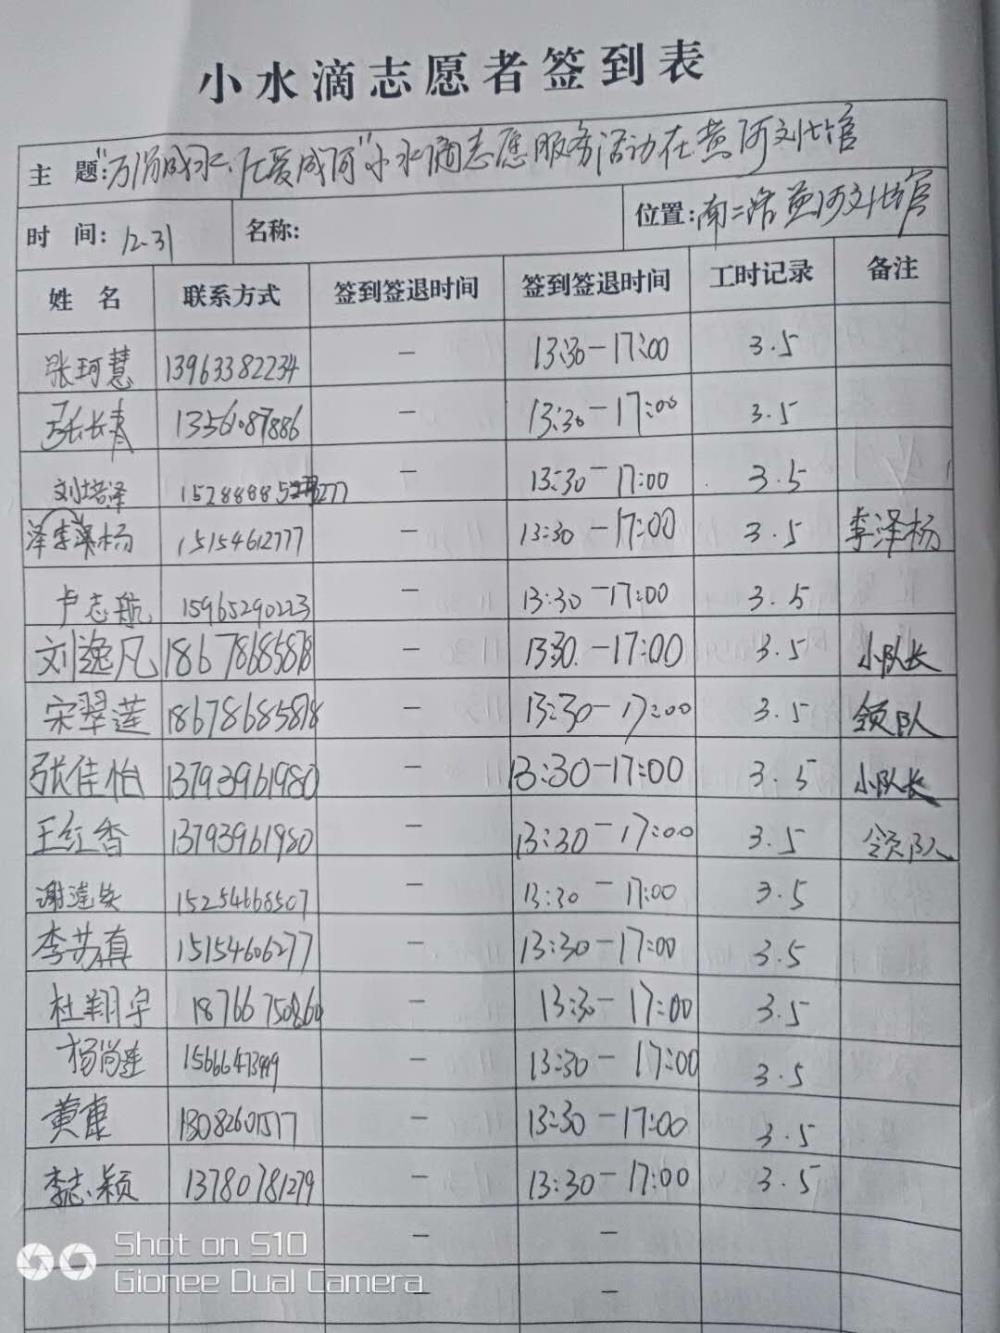 小水滴志愿者签到表
主 题:"万涓成水·汇爱成河"小水滴志愿服务活动在黄河文化馆
时 间: 12-31 名称: 位置: 南二路黄河文化馆
姓 名 联系方式 签到签退时间 签到签退时间 工时记录 备注
张珂慧 13963382234 — 13:30-17:00 3.5
张长青 13561087886 — 13:30-17:00 3.5
刘培泽 — 13:30-17:00 3.5
杨 15154612777 — 13:30-17:00 3.5 李泽杨
卢志航 15965290223 — 13:30-17:00 3.5
刘逸凡 18678685878 — 1330.-17:00 3.5 小队长
宋翠莲 18678685878 — 13:30-17:00 3.5 领队
张佳怡 13793961980 — 13:30-17:00 3.5 小队长
王红香 13793961980 — 13:30-17:00 3.5 领队
谢 15254668507 — 13:30-17:00 3.5
李苏真 15154606277 — 13:30-17:00 3.5
杜翔宇 18766750860 — 13:30-17:00 3.5
杨尚 — 13:30-17:00 3.5
黄康 — 13:30-17:00 3.5
李志颖 13780781279 — 13:30-17:00 3.5
— —
— —
Shot on S10
Gionee Dual Camera